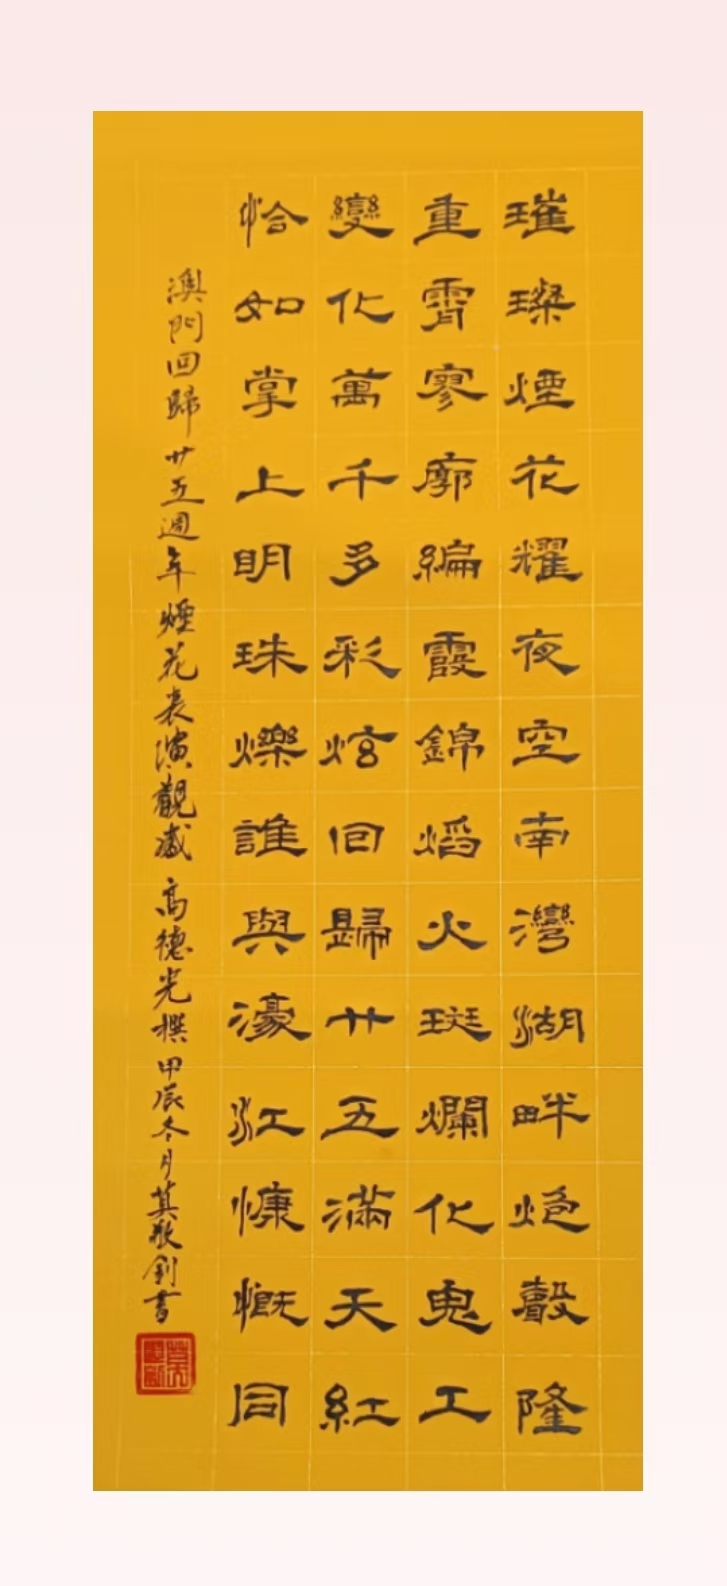 璀璨煙花耀夜空南灣湖畔炮聲隆
重霄寥廓編霞錦熖火斑爛化鬼工
變化萬千多彩炫回歸廿五滿天紅
恰如掌上明珠爍誰與濠江慷慨同
澳門回歸廿五週年煙花表演觀感 高德光撰 甲辰冬月莫敬釗書